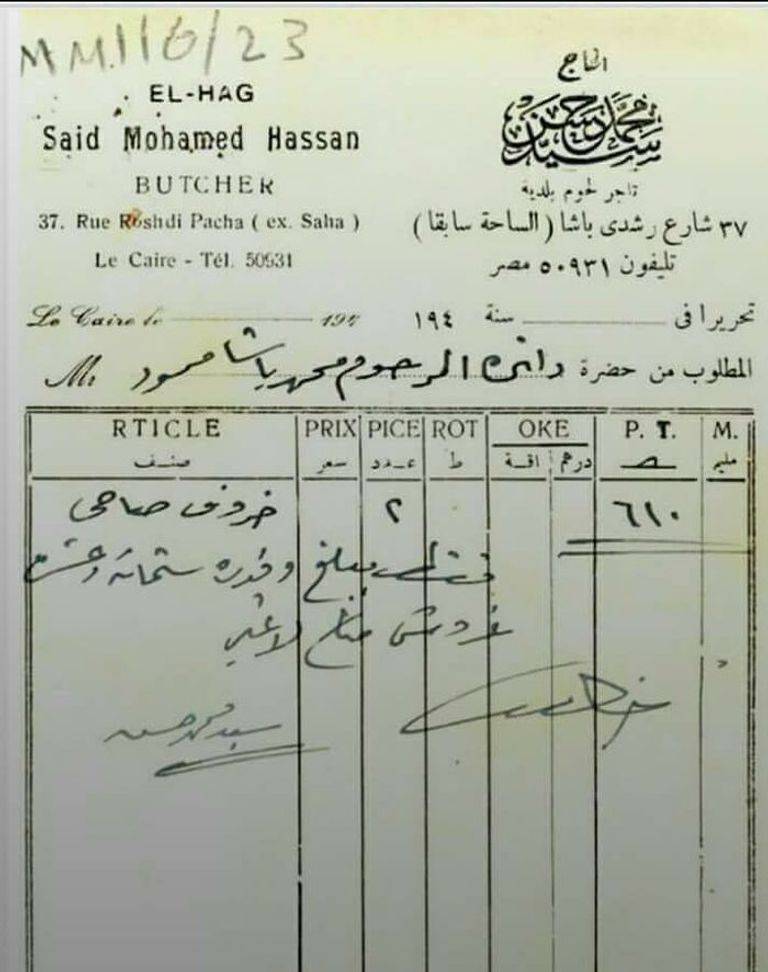 MM.116/23
EL-HAG
Said Mohamed Hassan
BUTCHER
37. Rue Roshdi Pacha ( ex. Saha )
Le Caire - Tél. 50931
الحاج
سيد محمد حسن
تاجر لحوم بلدية
٣٧ شارع رشدى باشا ( الساحة سابقا )
تليفون ٥٠٩٣١ مصر
Le Caire le 194
تحريرا فى سنة ١٩٤
المطلوب من حضرة دائرة المرحوم محمد باشا محمود
Mr
RTICLE PRIX PICE ROT OKE P. T. M.
صنف سعر عدد ط اقة درهم مليم
خروف صاحى ٢ ٦١٠
فقط مبلغ وقدره ستمائة وعشرة
قروش صاغ لا غير
سيد محمد حسن